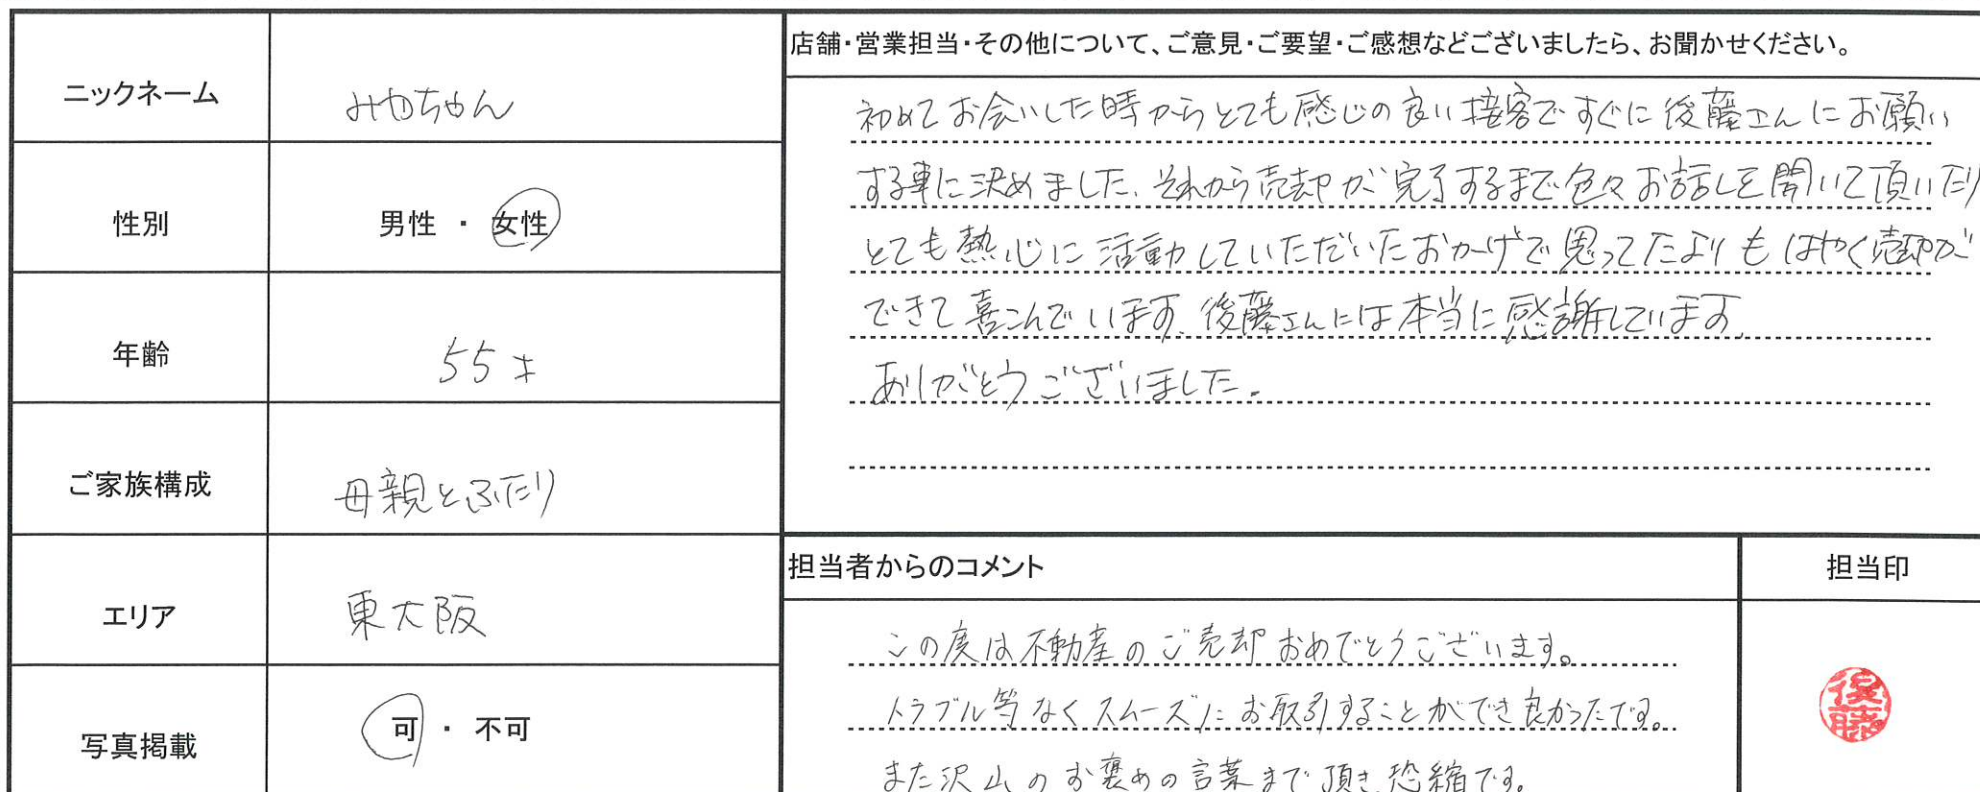 ニックネーム
みわちゃん
性別
男性 ・ 女性
年齢
55才
ご家族構成
母親とふたり
エリア
東大阪
写真掲載
可 ・ 不可
店舗・営業担当・その他について、ご意見・ご要望・ご感想などございましたら、お聞かせください。
初めてお会いした時からとても感じの良い接客ですぐに後藤さんにお願い
する事に決めました、それから売却が完了するまで色々お話しを聞いて頂いたり
とても熱心に活動していただいたおかげで思ってたよりもはやく売却が
できて喜こんでいます、後藤さんには本当に感謝しています、
ありがとうございました。
担当者からのコメント
この度は不動産のご売却おめでとうございます。
トラブル等なくスムーズにお取引することができ良かったです。
また沢山のお褒めの言葉まで頂き恐縮です。
担当印
後藤